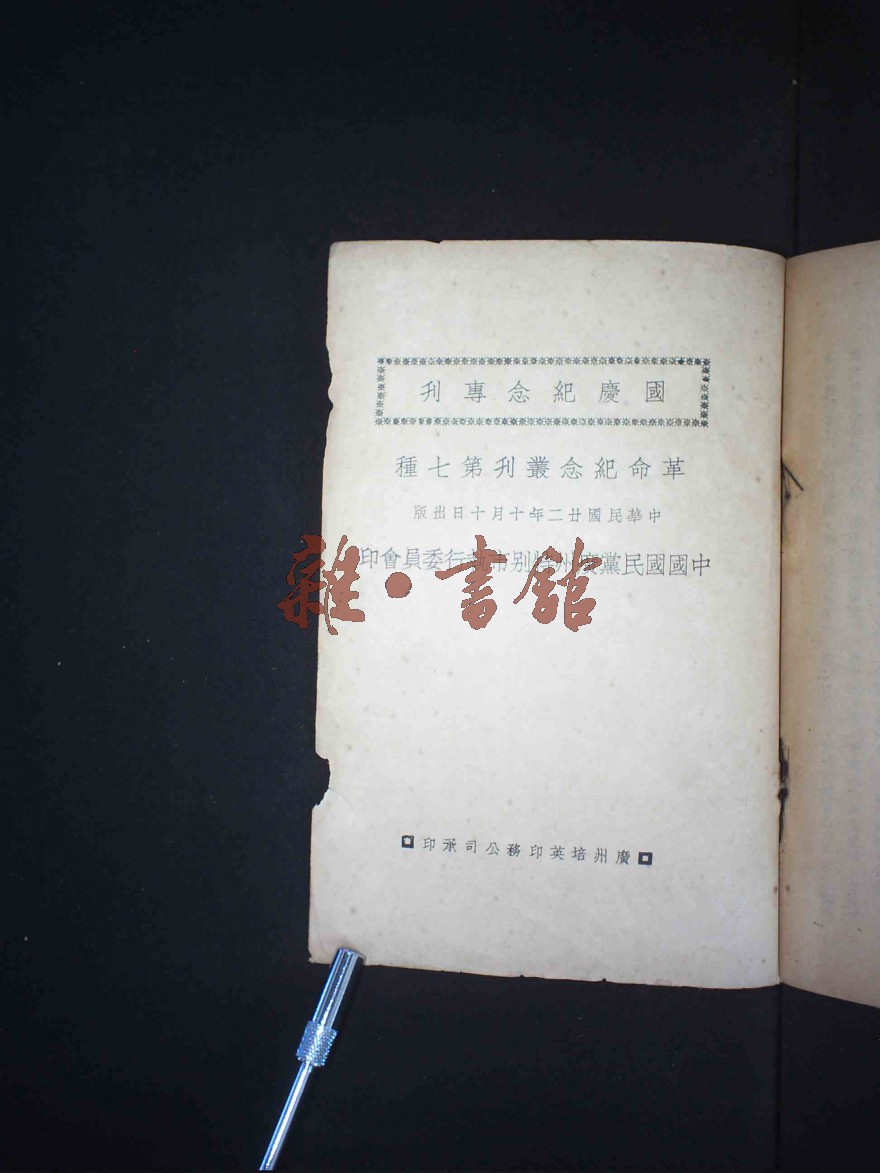 國慶紀念專刊
革命紀念叢刊第七種
中華民國廿二年十月十日出版
中國國民黨廣州特別市執行委員會印
雜·書館
廣州培英印務公司承印